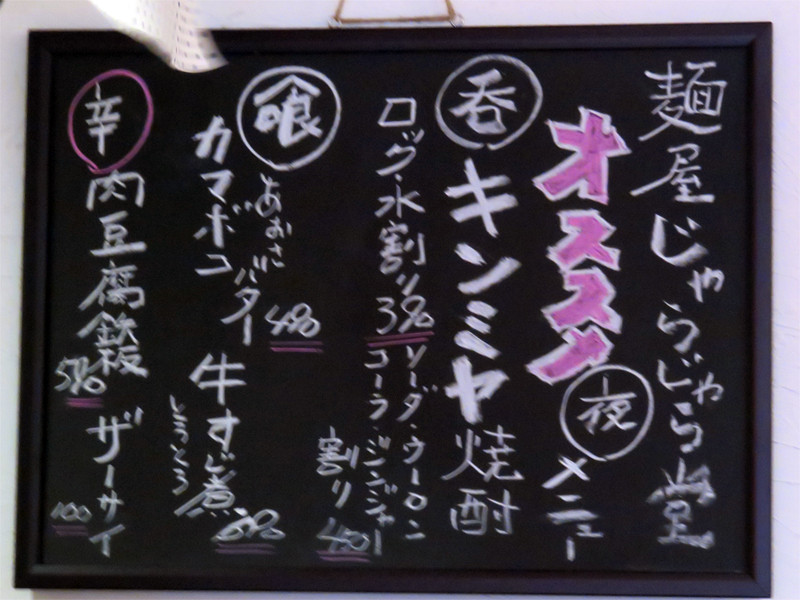 麺屋じゃらじゃら堂
オススメ
夜
メニュー
呑
キンミヤ焼酎
ロック・水割り
ソーダ・ウーロン
コーラ・ジンジャー
割り
喰
あおさ
カマボコバター
牛すじ煮
とろとろ
辛
肉豆腐鉄板
ザーサイ
100